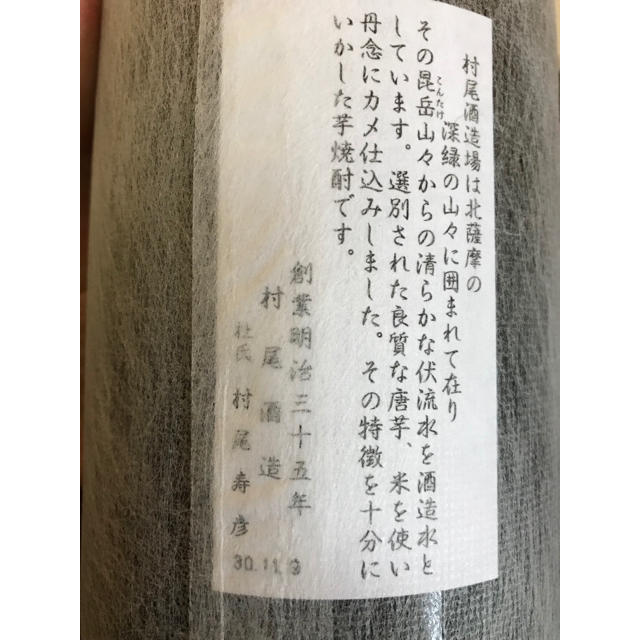 村尾酒造場は北薩摩の
深緑の山々に囲まれて在り
その昆岳山々からの清らかな伏流水を酒造水と
こんたけ
しています。選別された良質な唐芋、米を使い
丹念にカメ仕込みしました。その特徴を十分に
いかした芋焼酎です。
創業明治三十五年
村尾酒造
杜氏 村尾寿彦
30.11.9